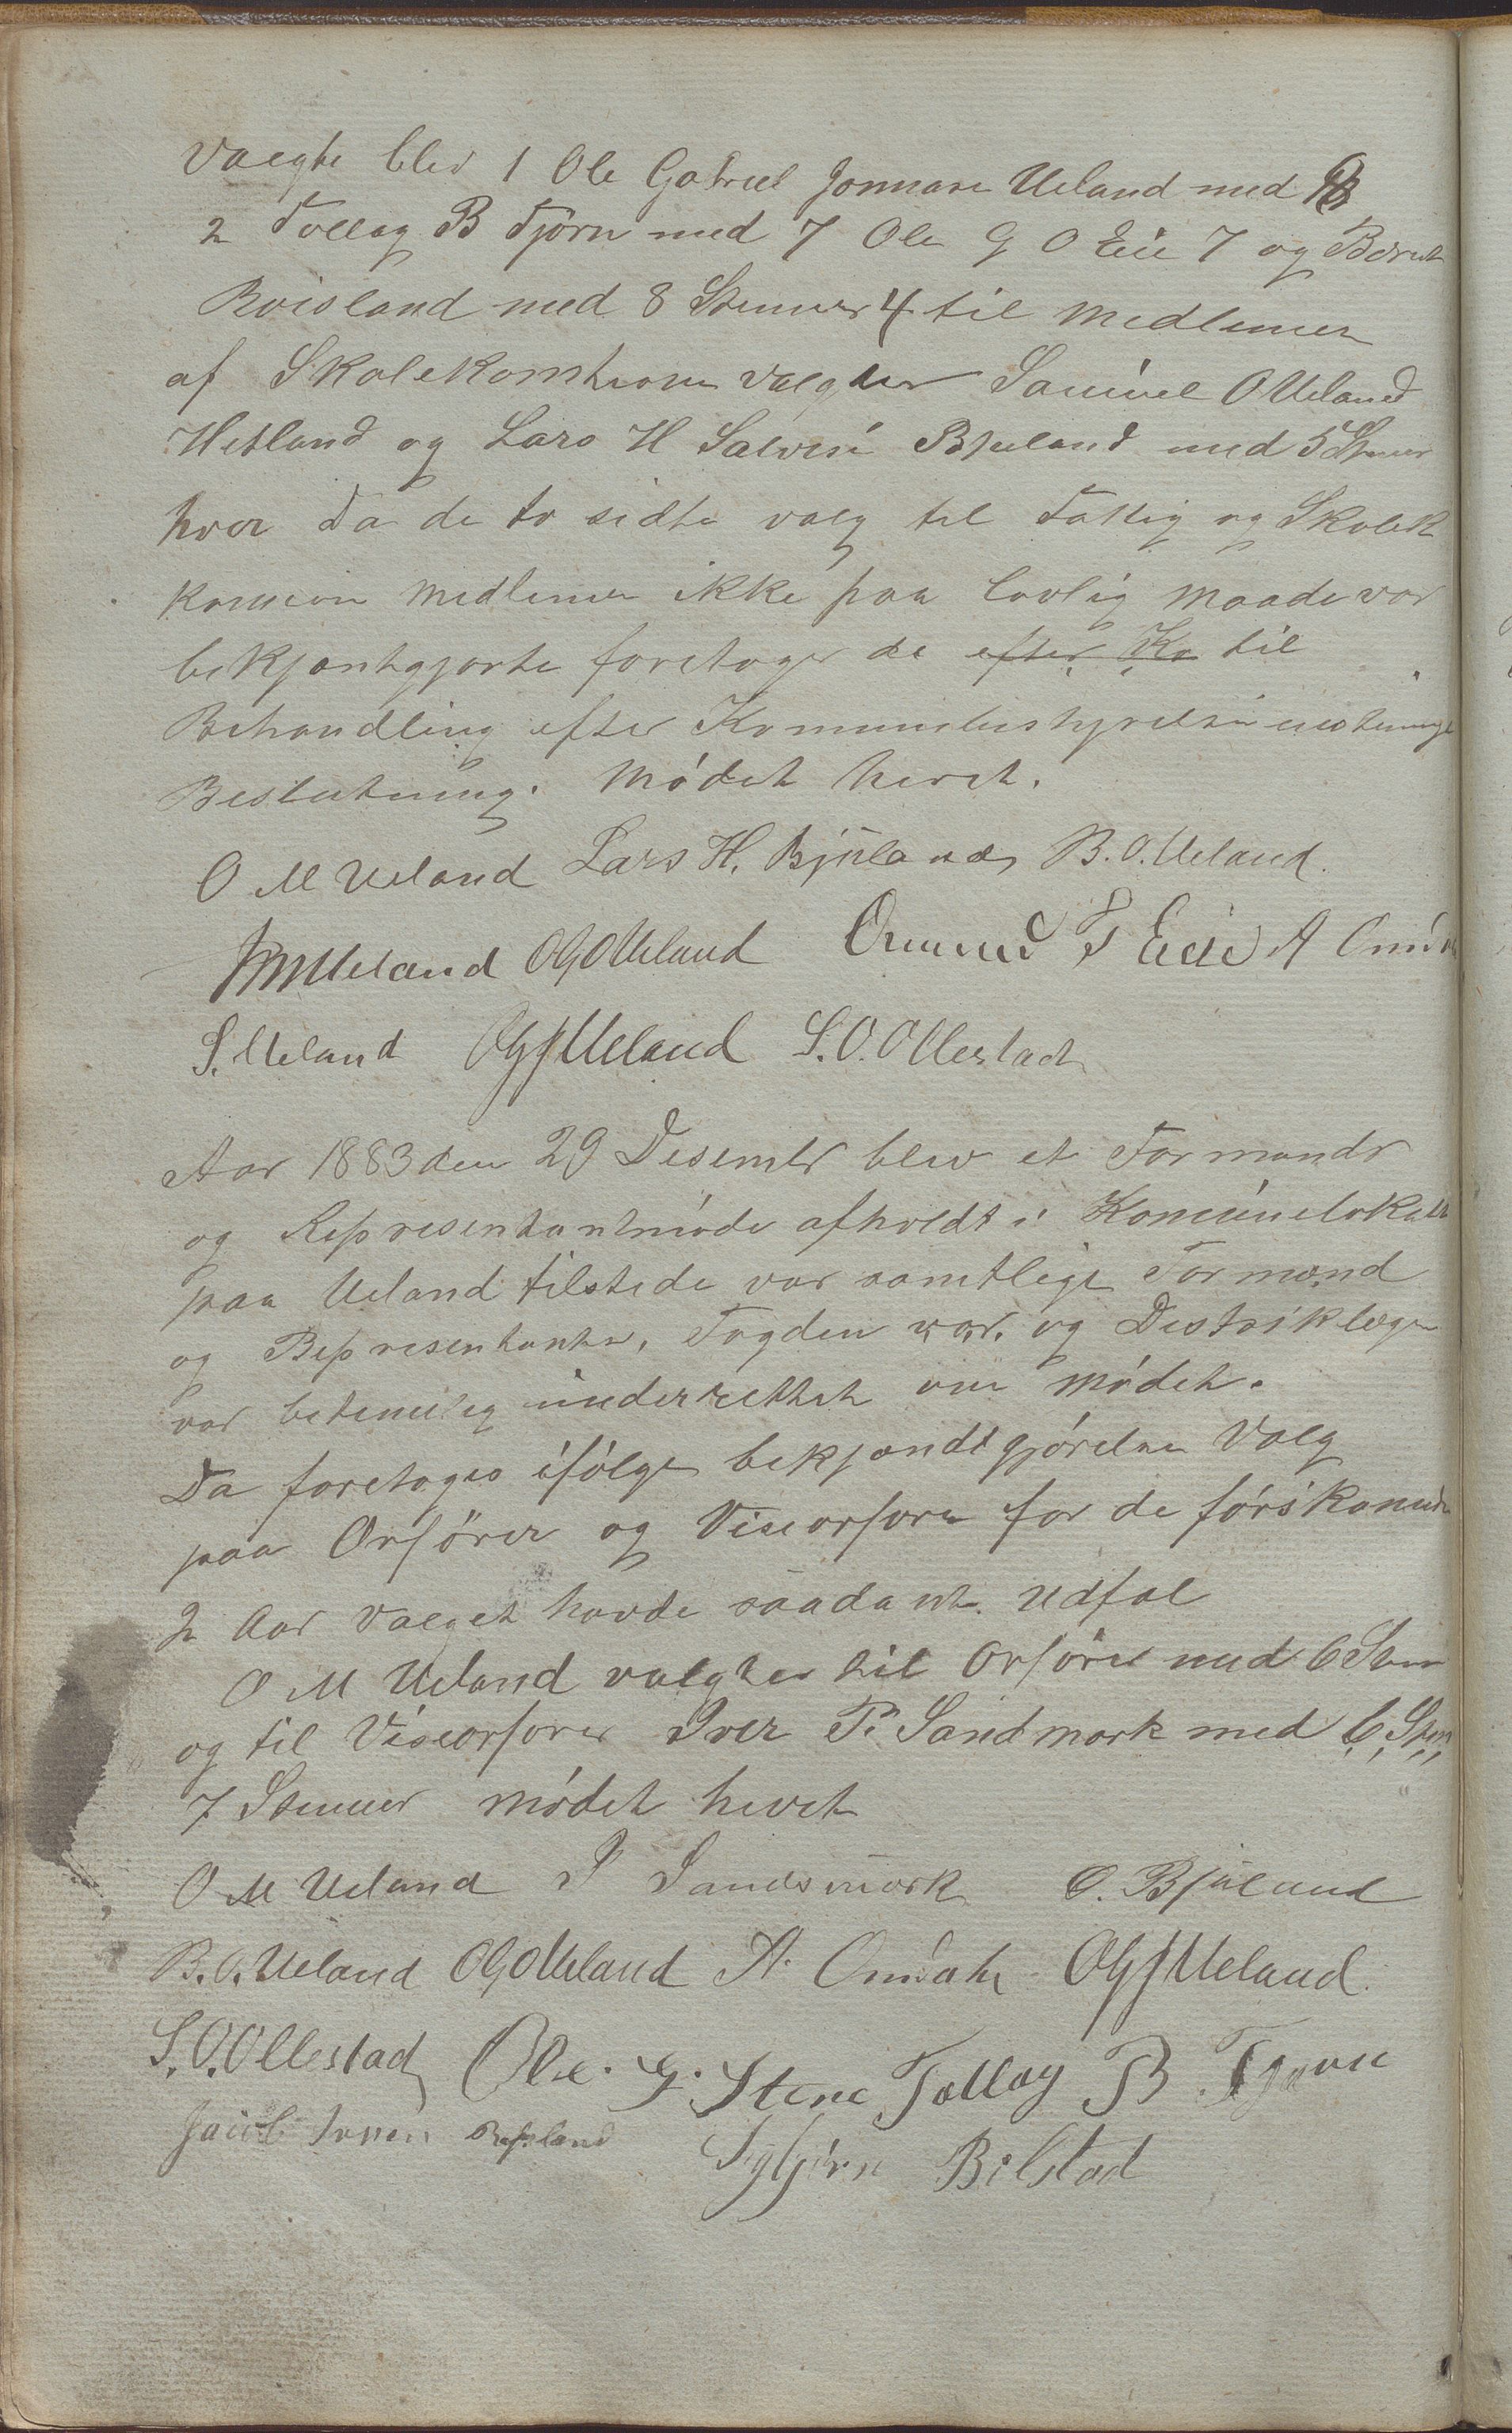 Valgte blev 1 Ole Gabriel Jonnasen Ueland med
2 Tollag B Tjørn med 7 Ole G O Eie 7 og Berent
Røisland med 8 Stemmer 4 til Medlemer
af Skolekomtionen valgtes Samuel O Ueland
Hetland og Lars H Salvesen Bjuland med 5 Stemer
hver Da de to sidte valg til Fattig og Skolek
komion Medlemer ikke paa lovlig Maade var
bekjentgjorte foretoges de efter Ko til
Behandling efter Kommunebestyrelsen enstemige
Beslutning. Mødet hevet.
O M Ueland Lars H. Bjuland, B. O. Ueland.
Ueland OGOUeland Omund T Eeie A Omdal
S. Ueland OGJUeland S. O. Ollestad
Aar 1883 den 29 Desembr blev et Formands
og Representantmøde afholdt i Komunelokalet
paa Ueland tilstede var samtlige Formænd
og Representanter, Fogden var. og Distriklegen
var betimelig underrettet om Mødet.
Da foretoges ifølge bekjendtgjørelse Valg
paa Orfører og Viseorfører for de førskomende
2 Aar Valget havde saadant Udfal
O M Ueland valgtes til Orfører med 6 Stem
og til Viseorfører Iver P. Sandsmark med 6 Stem
7 Stemmer Mødet hevet
O M Ueland I Sandsmark O. Bjuland
B. O. Ueland OGOUeland A. Omdahl OGJUeland.
S. O. Ollestad Ole. G. Stene Tollag B Tjørn
Jacob Ivesen Refsland Sigbjørn Bilstad